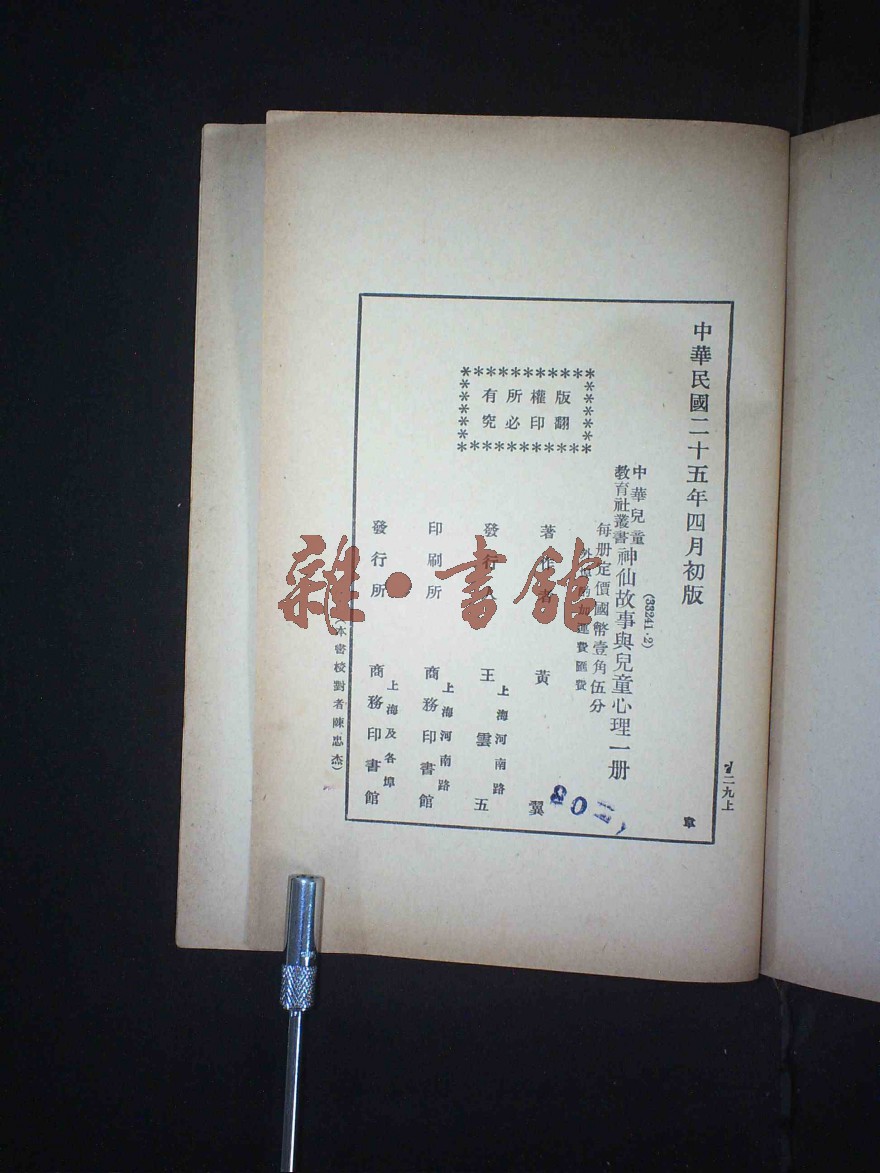 中華民國二十五年四月初版
(33241·2)
中華兒童
教育社叢書
神仙故事與兒童心理一册
每册定價國幣壹角伍分
外埠酌加運費匯費
版權所有
翻印必究
著作者 黃翼
發行人 王雲五
上海河南路
印刷所 商務印書館
上海河南路
發行所 商務印書館
上海及各埠
(本書校對者陳忠杰)
二九上
章
雜·書館